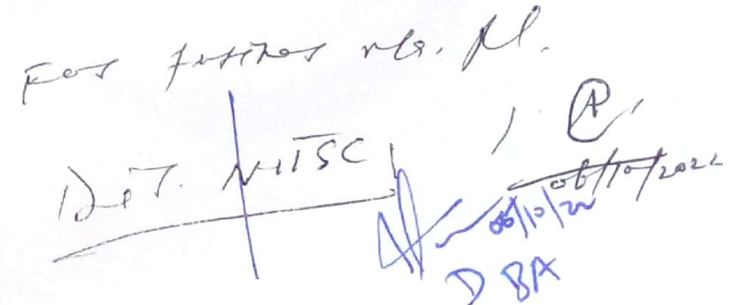 For further n/a. Pl.
A
Dir. NITSC
06/10/2022
06/10/22
DBA